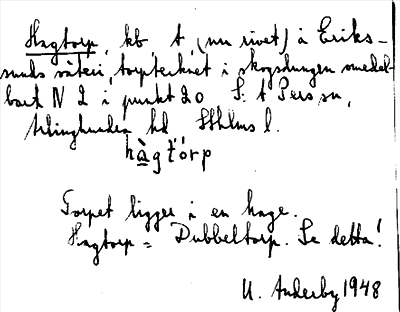 Hagtorp, kb t, (nu rivet) å Eriks-
sunds säteri, torptecknet i skogsdungen omedel-
bart N 2 i punkt 20 S: t Pers sn,
Erlinghundra hd Sthlms l.
hàgtórp
Torpet ligger i en hage.
Hagtorp = Dubbeltorp. Se detta!
U. Anderby 1948